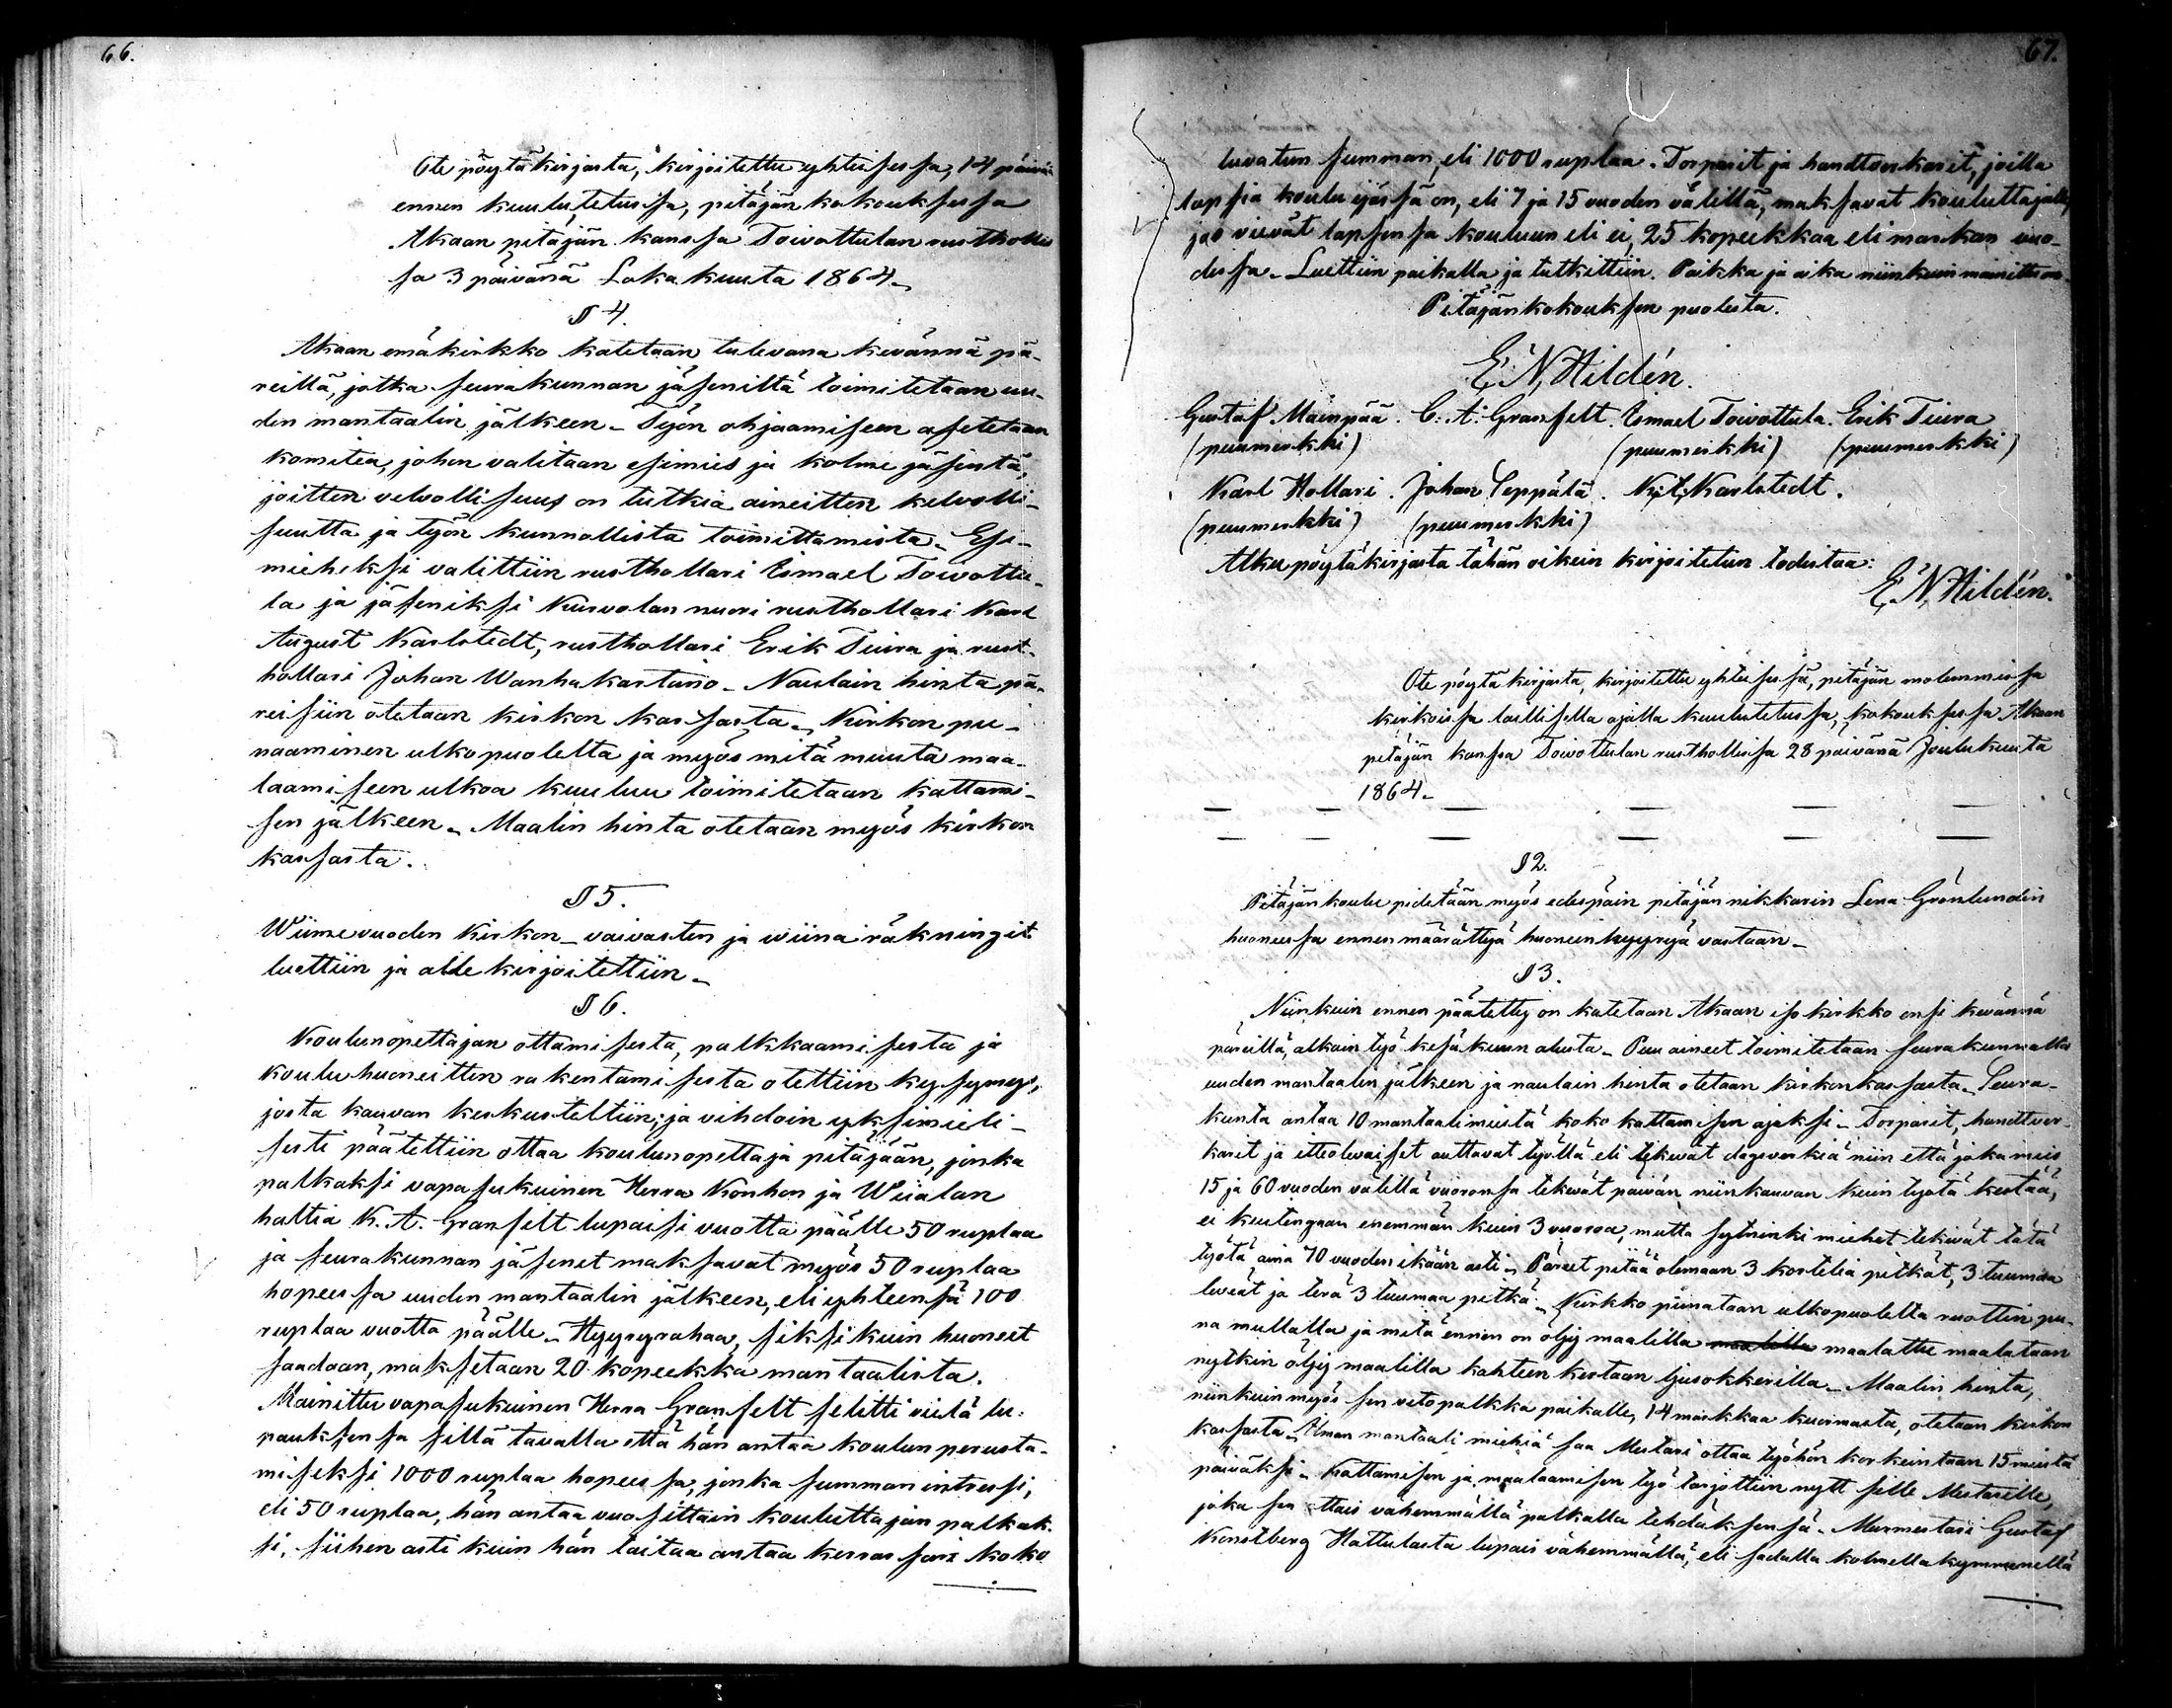 66.
Ote pöytäkirjasta, kirjoitettu yhteisessa, 14 päivää
ennen kuulutetussa, pitäjän kokouksessa
Akaan pitäjän kanssa Toivottulan rusthollis
sa 3 päivänä Lokakuuta 1864.
§ 4.
Akaan emäkirkko katetaan tulevana kevännä pä-
reillä, jotka seurakunnan jäseniltä toimitetaan uu-
den mantaalin jälkeen. Työn ohjaamiseen asetetaan
komitea, johon valitaan esimies ja kolme jäsentä,
joitten velvollisuus on tutkia aineitten kelvolli-
suutta ja työn kunnollista toimittamista. Esi-
mieheksi valittiin rusthollari Esmael Toivottu-
la ja jäseniksi Kurvolan nuori rusthollari Karl
August Karlstedt, rusthollari Erik Tiura ja rust-
hollari Johan Wanhakartano. Naulain hinta pä-
reisiin otetaan kirkon kassasta. Kirkon pu-
naaminen ulkopuolelta ja myös mitä muuta maa-
laamiseen ulkoa kuuluu toimitetaan kattami-
sen jälkeen. Maalin hinta otetaan myös kirkon
kassasta.
§ 5.
Wiimevuoden kirkon- vaivasten ja viina räkningit
luettiin ja allekirjoitettiin.
§ 6.
Koulunopettajan ottamisesta, palkkaamisesta ja
kouluhuoneitten rakentamisesta otettiin kysymys,
josta kauvan keskusteltiin; ja vihdoin yksimieli-
sesti päätettiin ottaa koulunopettaja pitäjään, jonka
palkaksi vapasukuinen Herra Konhon ja Wiialan
haltia K. A. Granfelt lupaisi vuotta päälle 50 ruplaa
ja seurakunnan jäsenet maksavat myös 50 ruplaa
hopeessa uuden mantaalin jälkeen, eli yhteensä 100
ruplaa vuotta päälle. Hyyryrahaa, siksi kuin huoneet
saadaan, maksetaan 20 kopeekka mantaalista.
Mainittu vapasukuinen Herra Granfelt selitti vielä lu-
pauksensa sillä tavalla että hän antaa koulun perusta-
miseksi 1000 ruplaa hopeessa, jonka summan intressi,
eli 50 ruplaa, hän antaa vuosittain kouluttajan palkak-
si, siihen asti kuin hän taitaa antaa kerrassani koko
67.
luvatun summan, eli 1000 ruplaa. Torparit ja handtvorkarit, joilla
lapsia koulu ijässä on, eli 7 ja 15 vuoden välillä, maksavat kouluttajalle,
jos vievät lapsensa kouluun eli ei, 25 kopeekkaa eli markan vuo-
dessa. Luettiin paikalla ja tutkittiin. Paikka ja aika niinkuin mainittu on.
Pitäjänkokouksen puolesta.
E. N. Hildén.
Gustaf Mainpää. C. A. Granfelt. Esmael Toivottula. Erik Tiura
(puumerkki) (puumerkki) (puumerkki)
Karl Hollari. Johan Seppälä. K. A. Karlstedt.
(puumerkki) (puumerkki)
Alkupöytäkirjasta tähän oikein kirjoitetun todistaa:
E. N. Hildén.
Ote pöytäkirjasta, kirjoitettu yhteisessä, pitäjän molemmissa
kirkoissa laillisella ajalla kuulutetussa, kokouksessa Akaan
pitäjän kanssa Toivottulan rusthollissa 28 päivänä Joulukuuta
1864.
§ 2.
Pitäjänkoulu pidetään myös edespäin pitäjän nikkarin Lena Grönlundin
huoneessa ennen määrättyä huoneenhyyryä vastaan.
§ 3.
Niinkuin ennen päätetty on katetaan Akaan iso kirkko ensi kevännä
päreillä, alkain työ kesäkuun alusta. Puu aineet toimitetaan seurakunnalta
uuden mantaalin jälkeen ja naulain hinta otetaan kirkonkassasta. Seura-
kunta antaa 10 mantaalimiestä koko kattamisen ajaksi. Torparit, handtver-
karit ja itteolevaiset auttavat työllä eli tekevät dagsverkiä niin että joka mies
15 ja 60 vuoden välillä vuoronsa tekevät päivän niinkauvan kuin työtä kestää,
ei kuitengaan enemmän kuin 3 vuoroa, mutta sytninki miehet tekivät tätä
työtä aina 70 vuoden ikään asti. Päreet pitää oleman 3 kortelia pitkät, 3 tuumaa
leveät ja terä 3 tuumaa pitkä. Kirkko punataan ulkopuolelta ruottin pu-
na mullalla ja mitä ennen on öljy maalilla maalilla maalattu maalataan
nytkin öljy maalilla kahteen kertaan ljusokkerilla. Maalin hinta,
niinkuin myös sen vetopalkka paikalle, 14 markkaa kuormasta, otetaan kirkon
kassasta. Ilman mantaali miehiä saa Mestari ottaa työhön korkeintaan 15 miestä
päiväksi. Kattamisen ja maalaamisen työ tarjottiin nytt selle Mestarille,
joka sen ottais vähemmällä palkalla tehdäksensä. Murmestari Gustaf
Konstberg Hattulasta lupais vähemmällä, eli sadalla kolmellakymmenellä